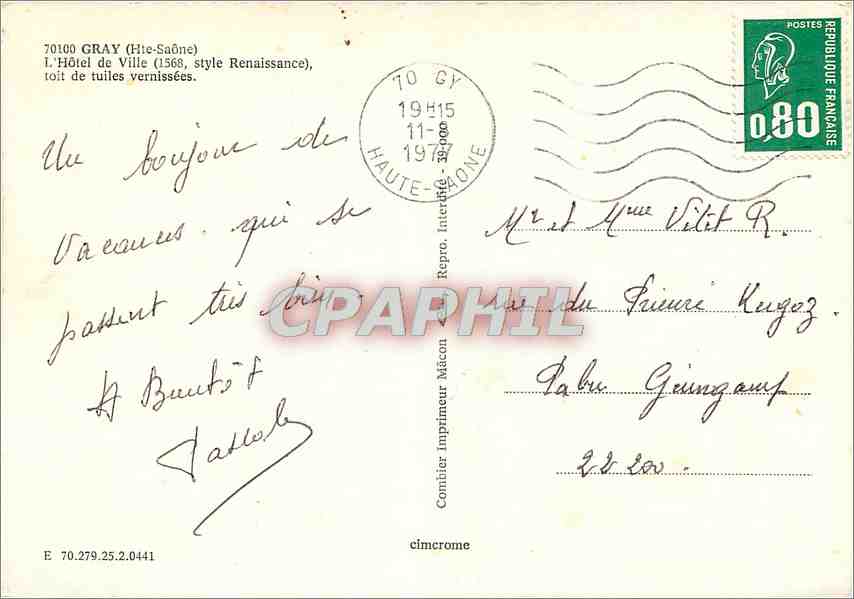 70100 GRAY (Hte-Saône)
L'Hôtel de Ville (1568, style Renaissance),
toit de tuiles vernissées.
70 GY
19H15
11-8
1977
HAUTE-SAONE
POSTES
REPUBLIQUE FRANÇAISE
0,80
Un bonjour de
Vacances qui se
passent très bien.
A Bientôt
Pascale
Combier Imprimeur Mâcon
Repro. Interdite - 39.000
CPAPHIL
Mr et Mme Vitit R.
rue du Prieuré Kergoz.
Pabu Guingamp
22 200.
E 70.279.25.2.0441
cimcrome